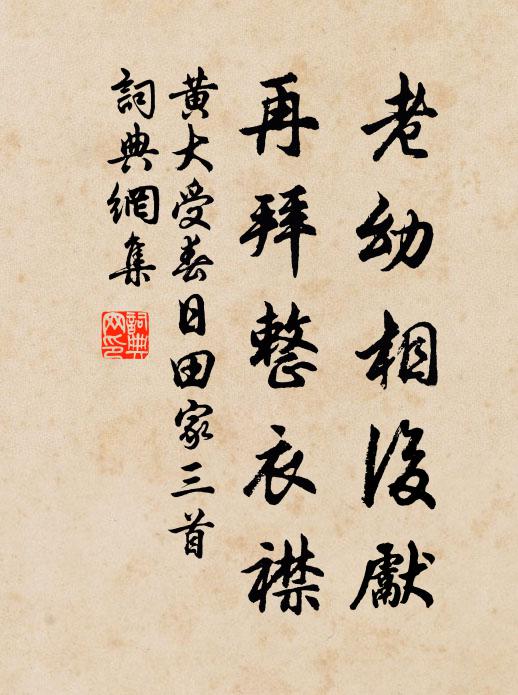 老幼相後獻
再拜整衣襟
黃大受春日田家三首
詞典網集
詞典
网印